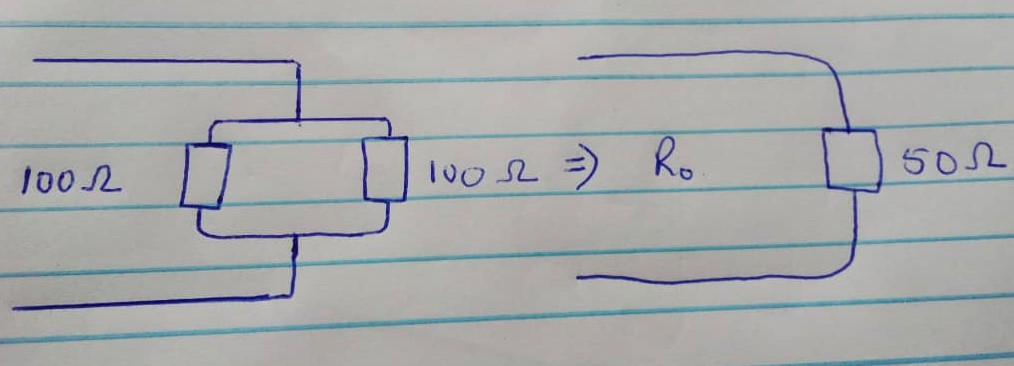 100Ω 100Ω ⇒ R₀ 50Ω